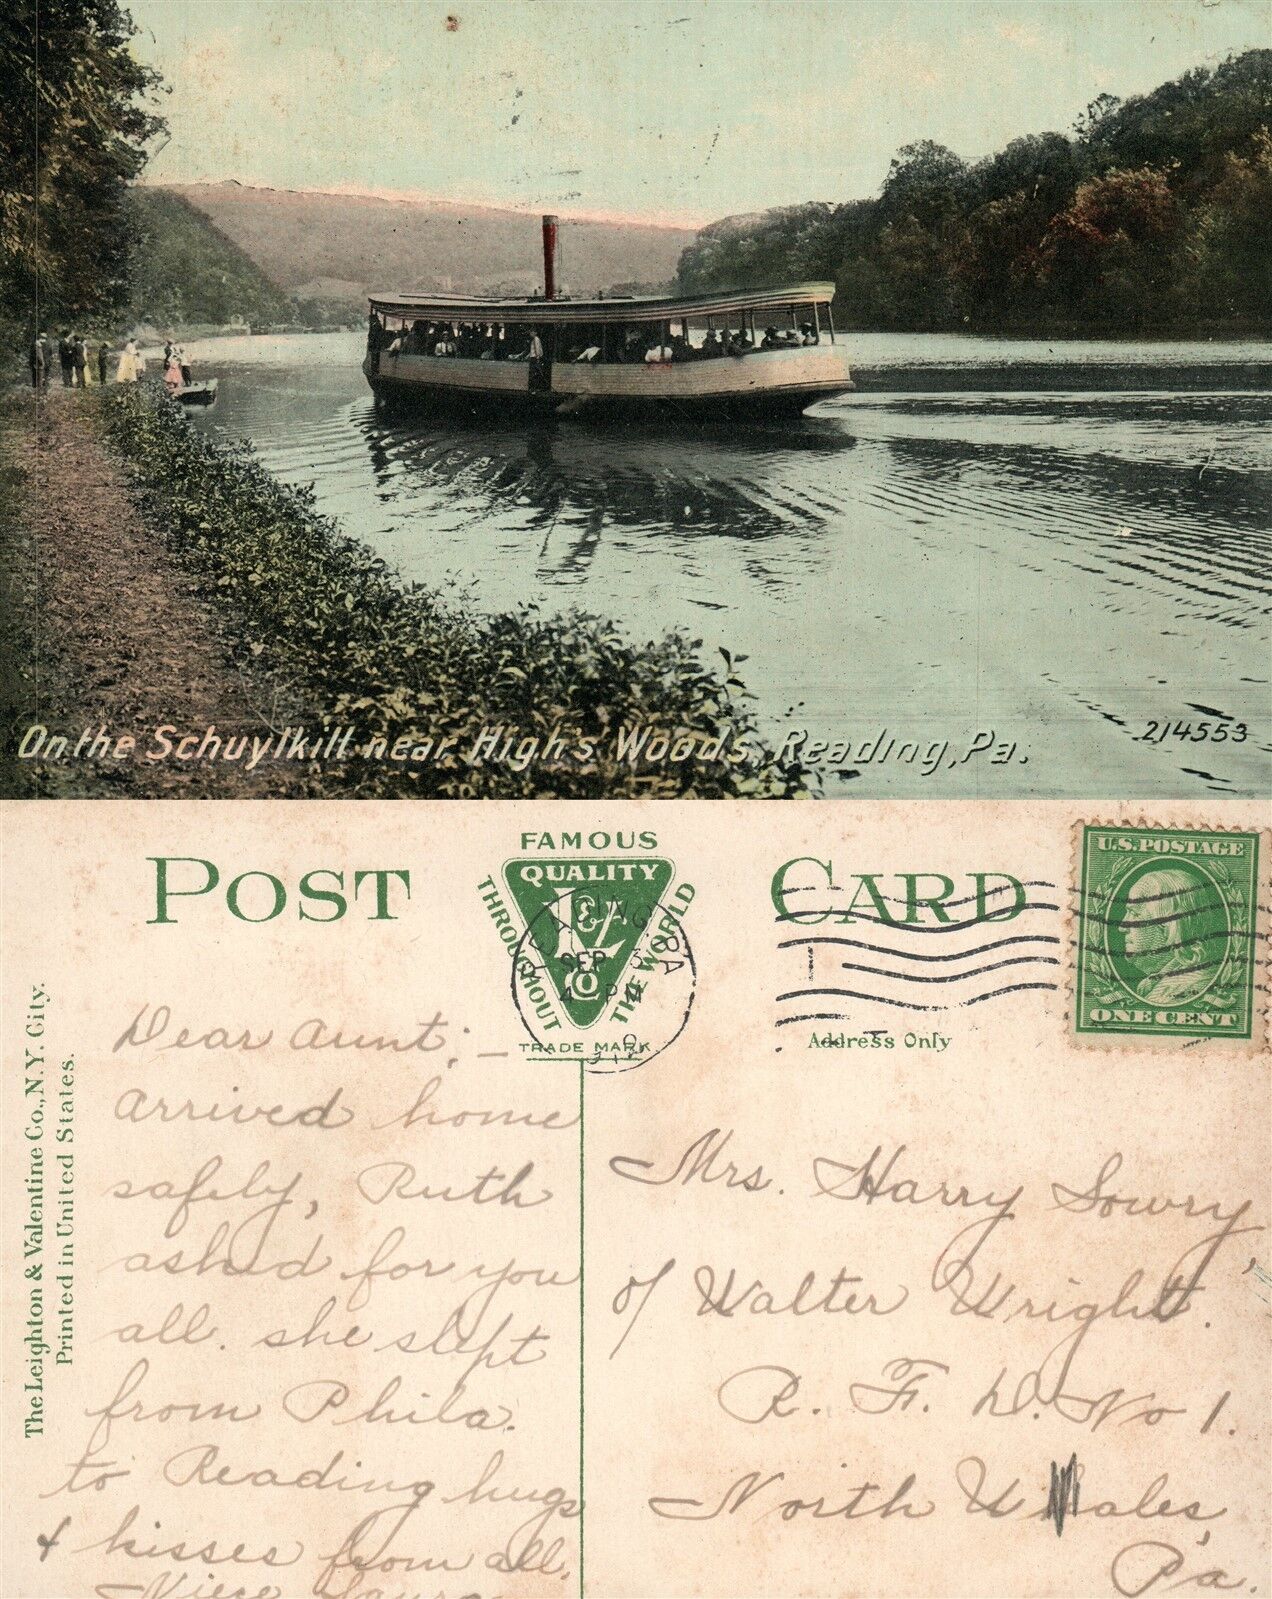 On the Schuylkill near High's Woods, Reading, Pa.
214553
POST CARD
FAMOUS
QUALITY
THROUGHOUT
THE WORLD
L & V Co
TRADE MARK
READING, PA
SEP 3
4 PM
1
U.S. POSTAGE
ONE CENT
Address Only
The Leighton & Valentine Co., N.Y. City.
Printed in United States.
Dear Aunt; —
Arrived home
safely, Ruth
asked for you
all. she slept
from Phila.
to Reading hugs
& kisses from all.
Niece Laura
Mrs. Harry Lowry,
of Walter Wright.
R. F. D. No 1.
North Wales,
Pa.